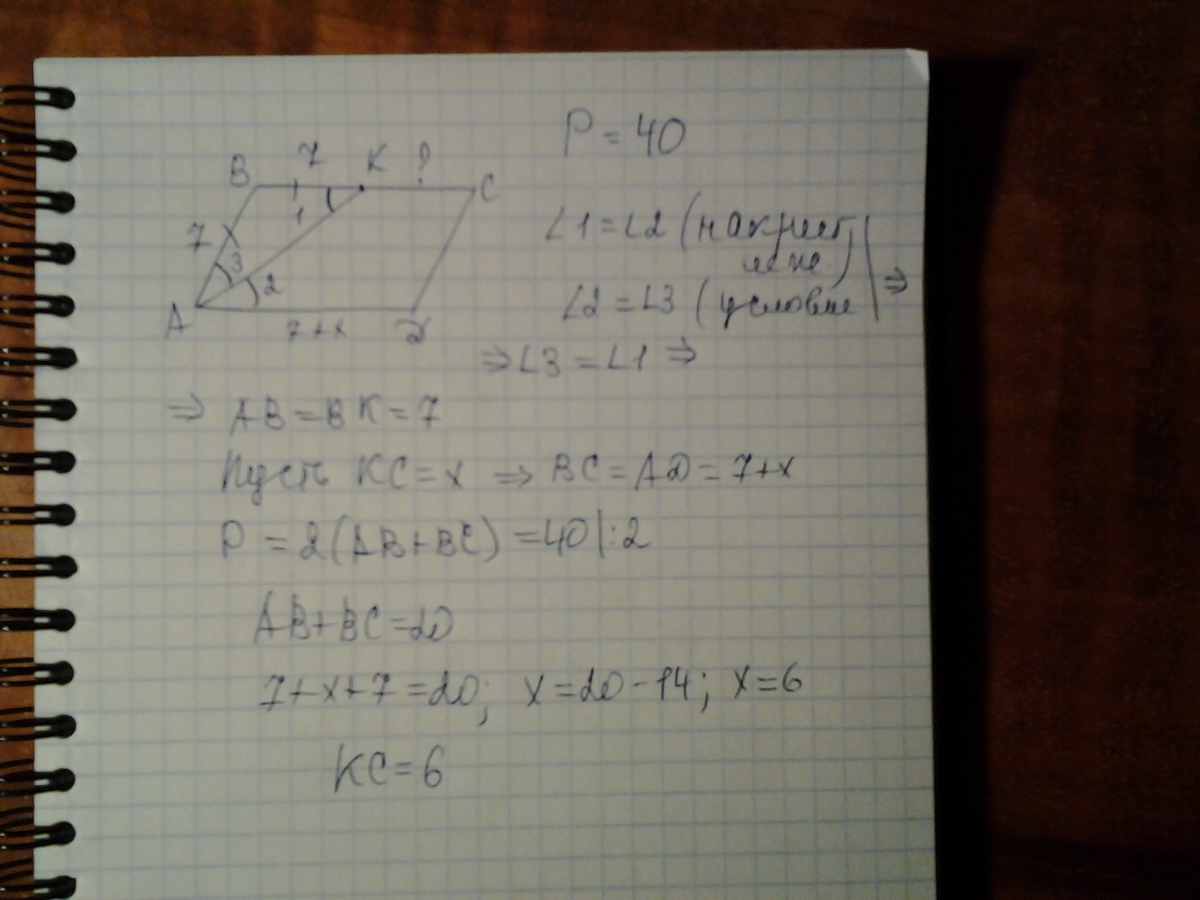 P = 40
B 7 K ? C
7 1
3 2
A 7+x D
∠1 = ∠2 (накрест
леж.)
∠2 = ∠3 (условие | ⇒
⇒ ∠3 = ∠1 ⇒
⇒ AB = BK = 7
Пусть KC = x ⇒ BC = AD = 7+x
P = 2(AB+BC) = 40 |:2
AB+BC = 20
7+x+7 = 20; x = 20-14; x = 6
KC = 6